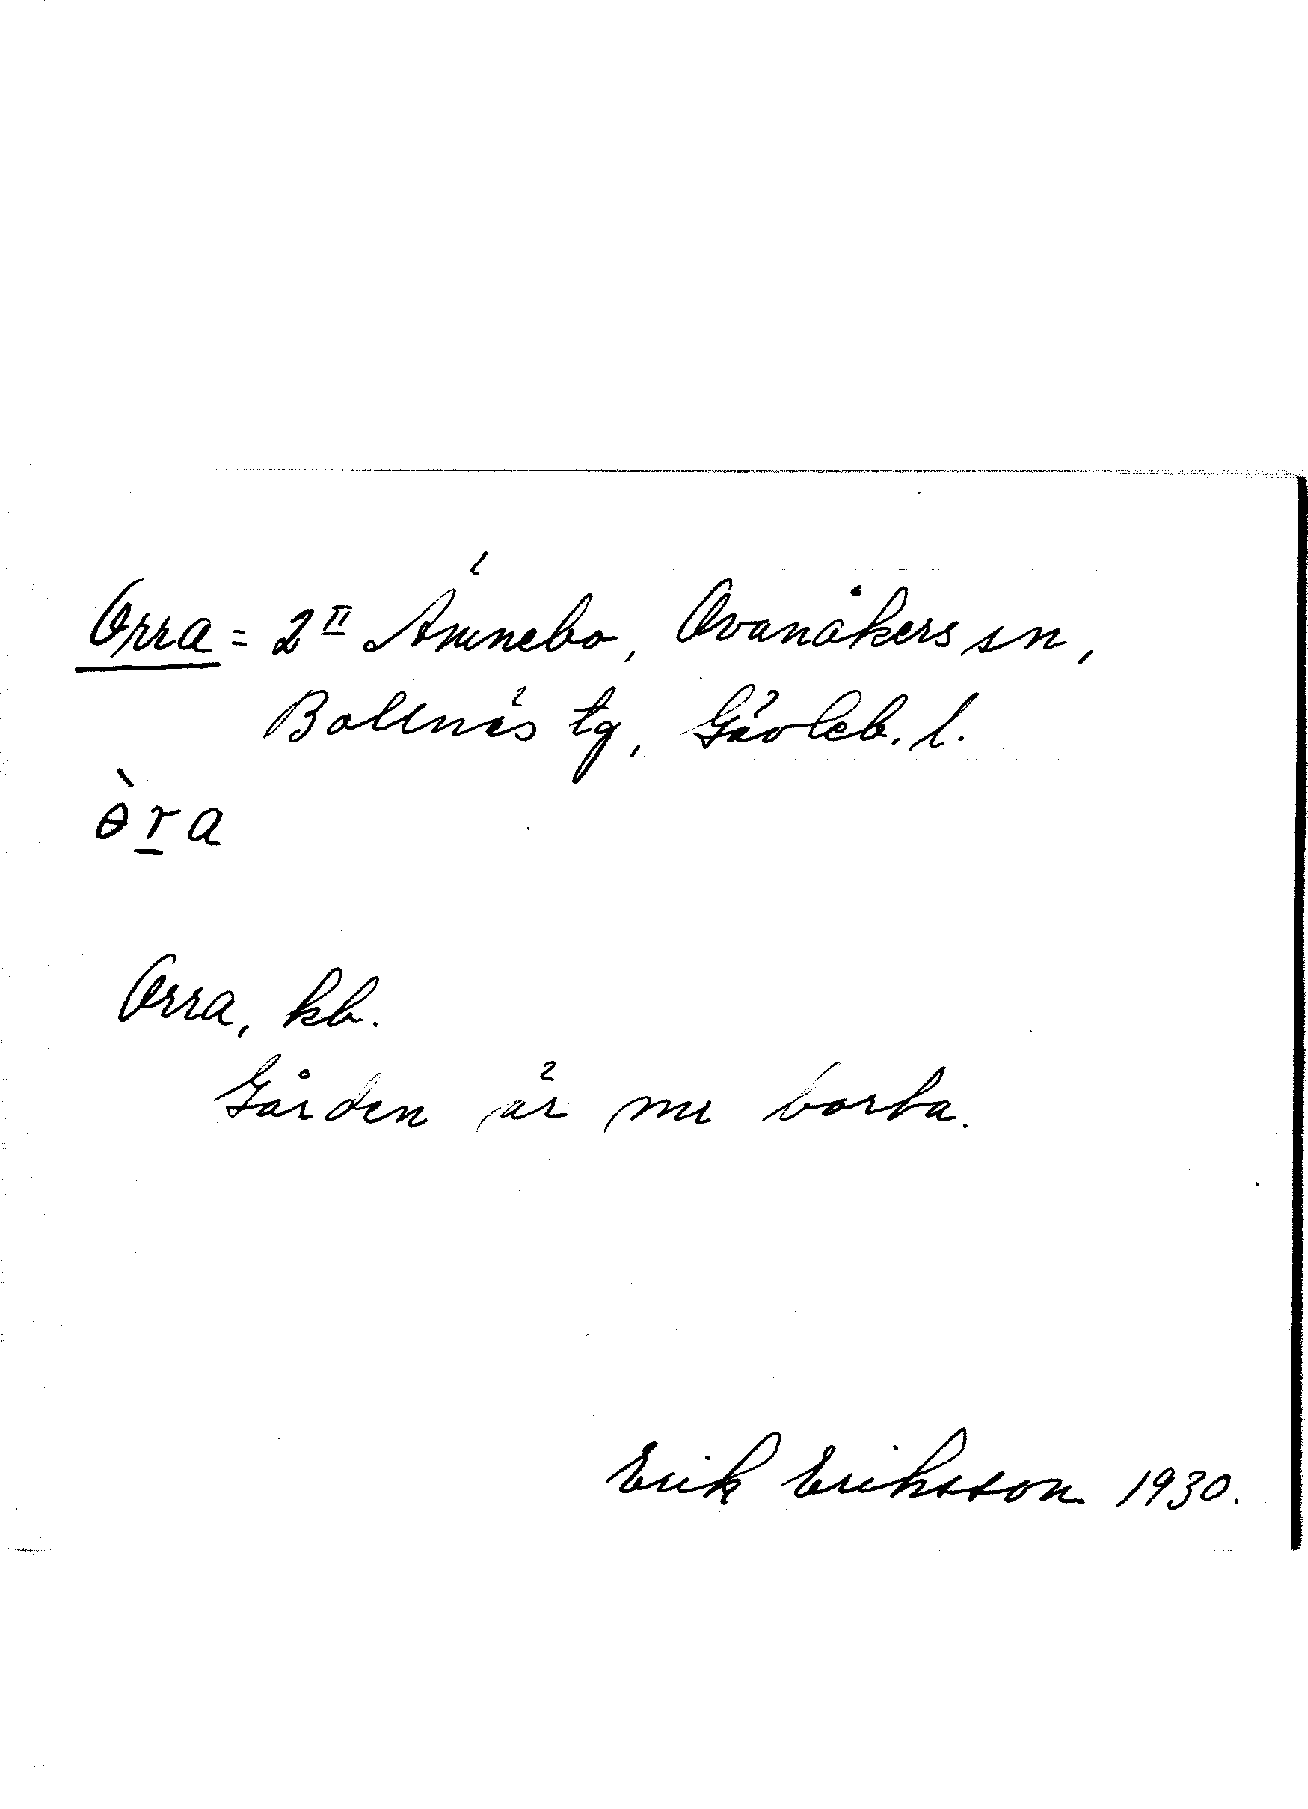 Orra = 2ᴵᴵ Ämnebo, Ovanåkers sn,
Bollnäs tg, Gävleb. l.
ɵ̀ra
Orra, kb.
Gården är nu borta.
Erik Eriksson 1930.